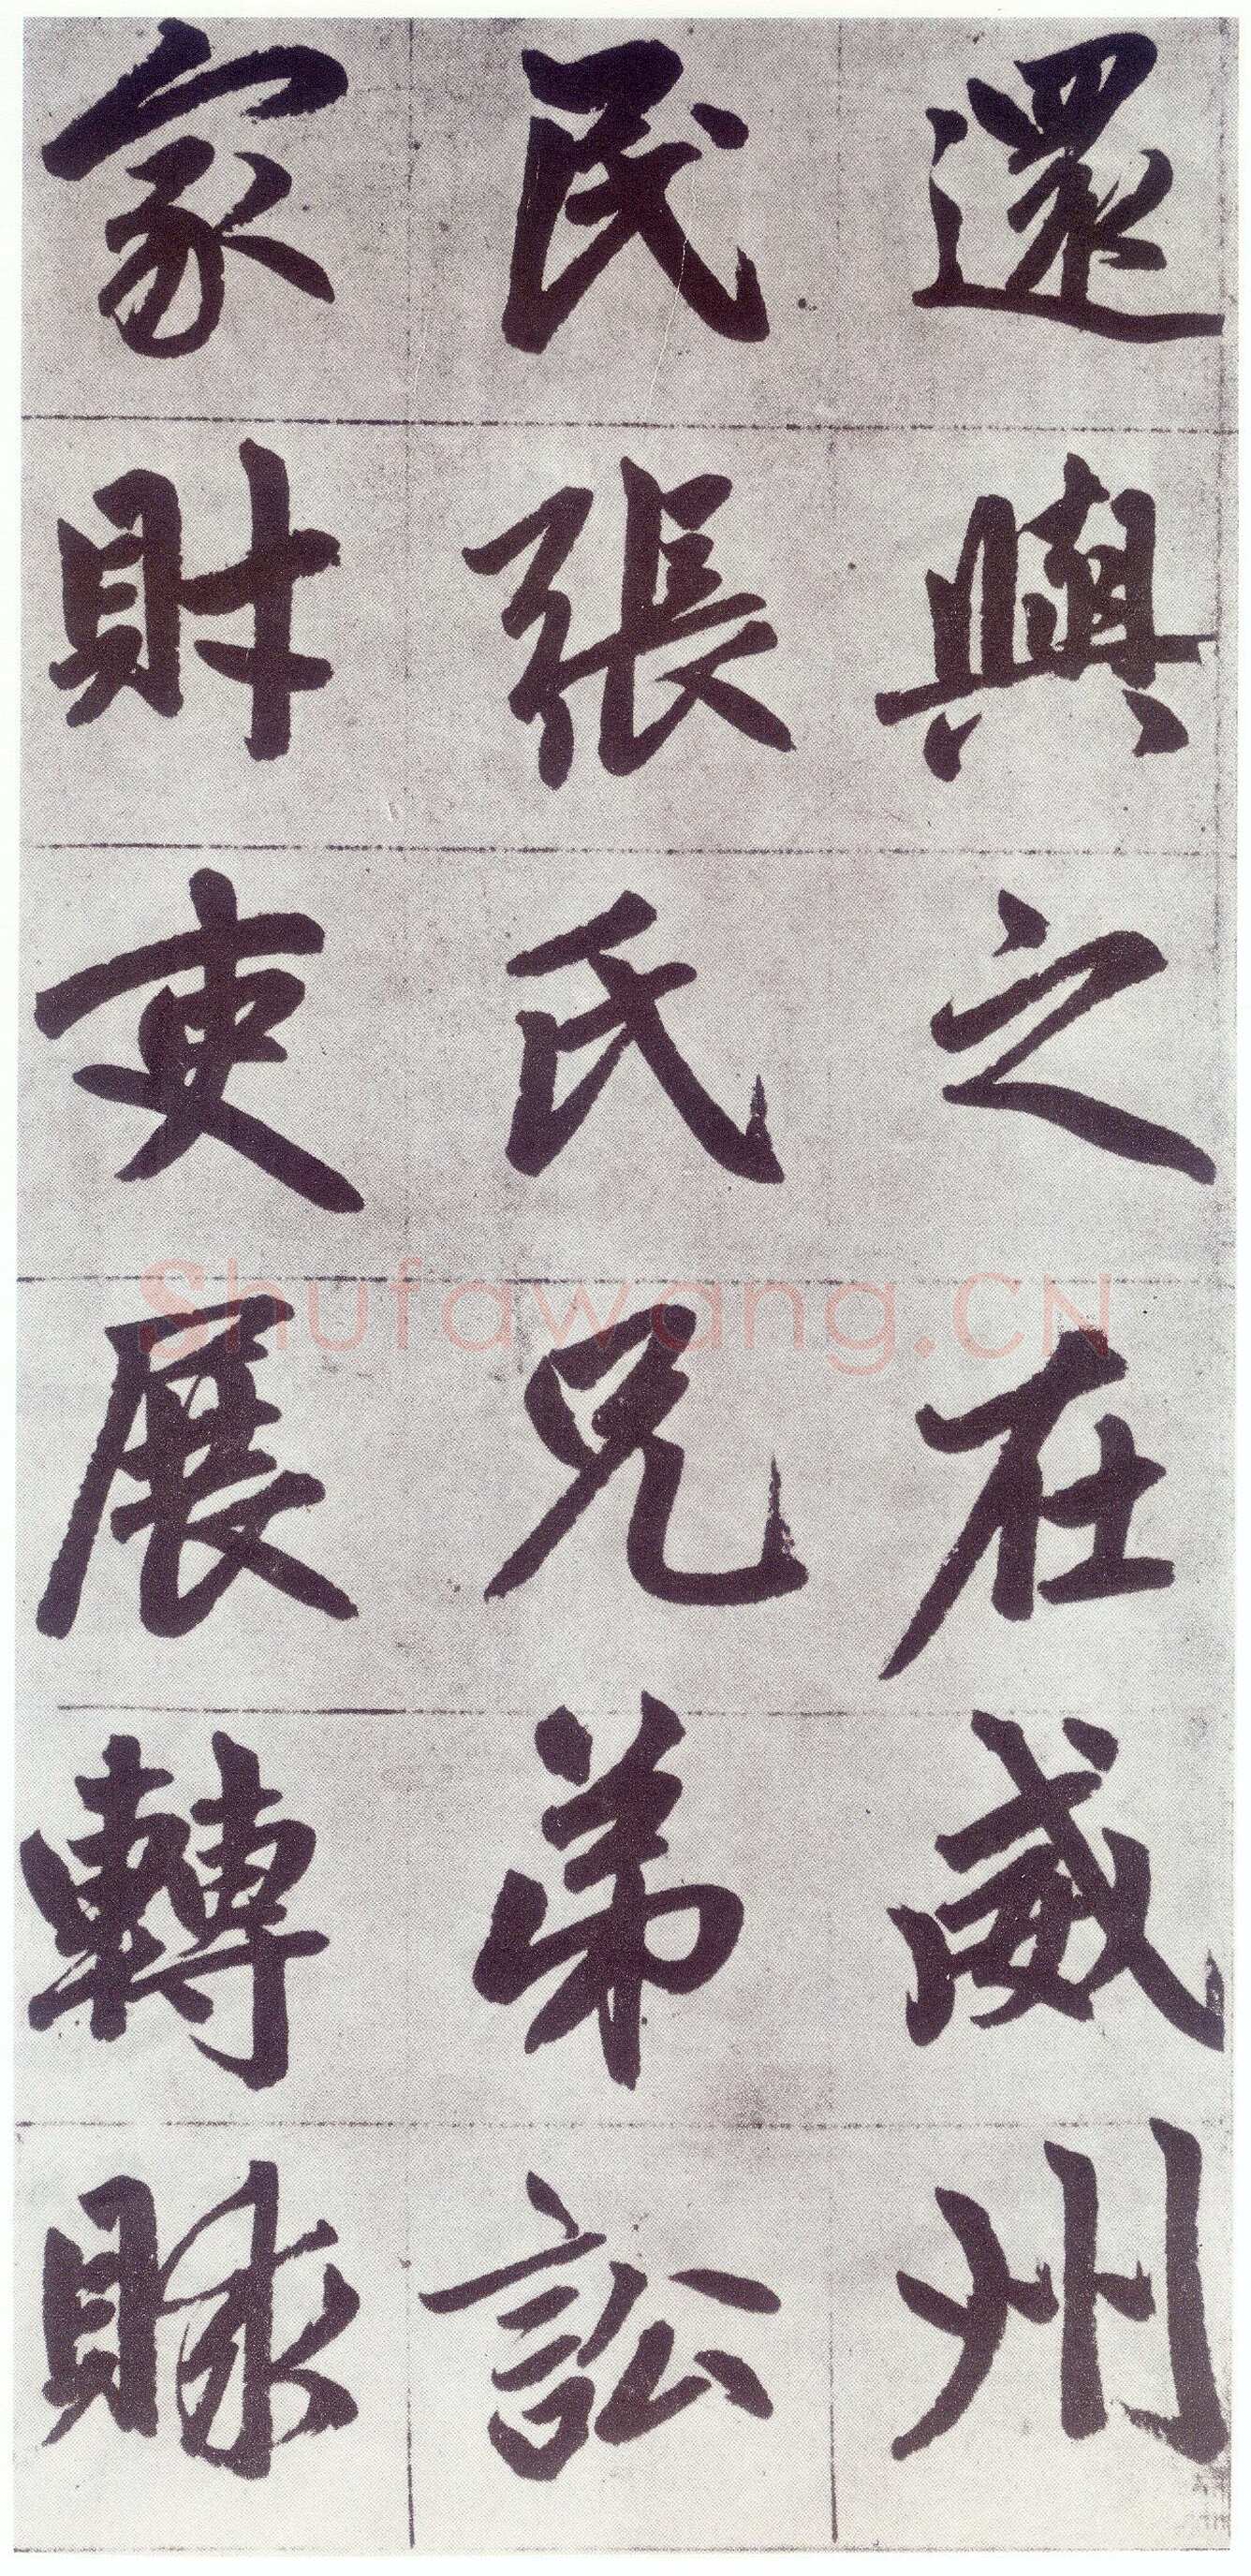 還與之在威州
民張氏兄弟訟
家財吏展轉賕
Shufawang.CN